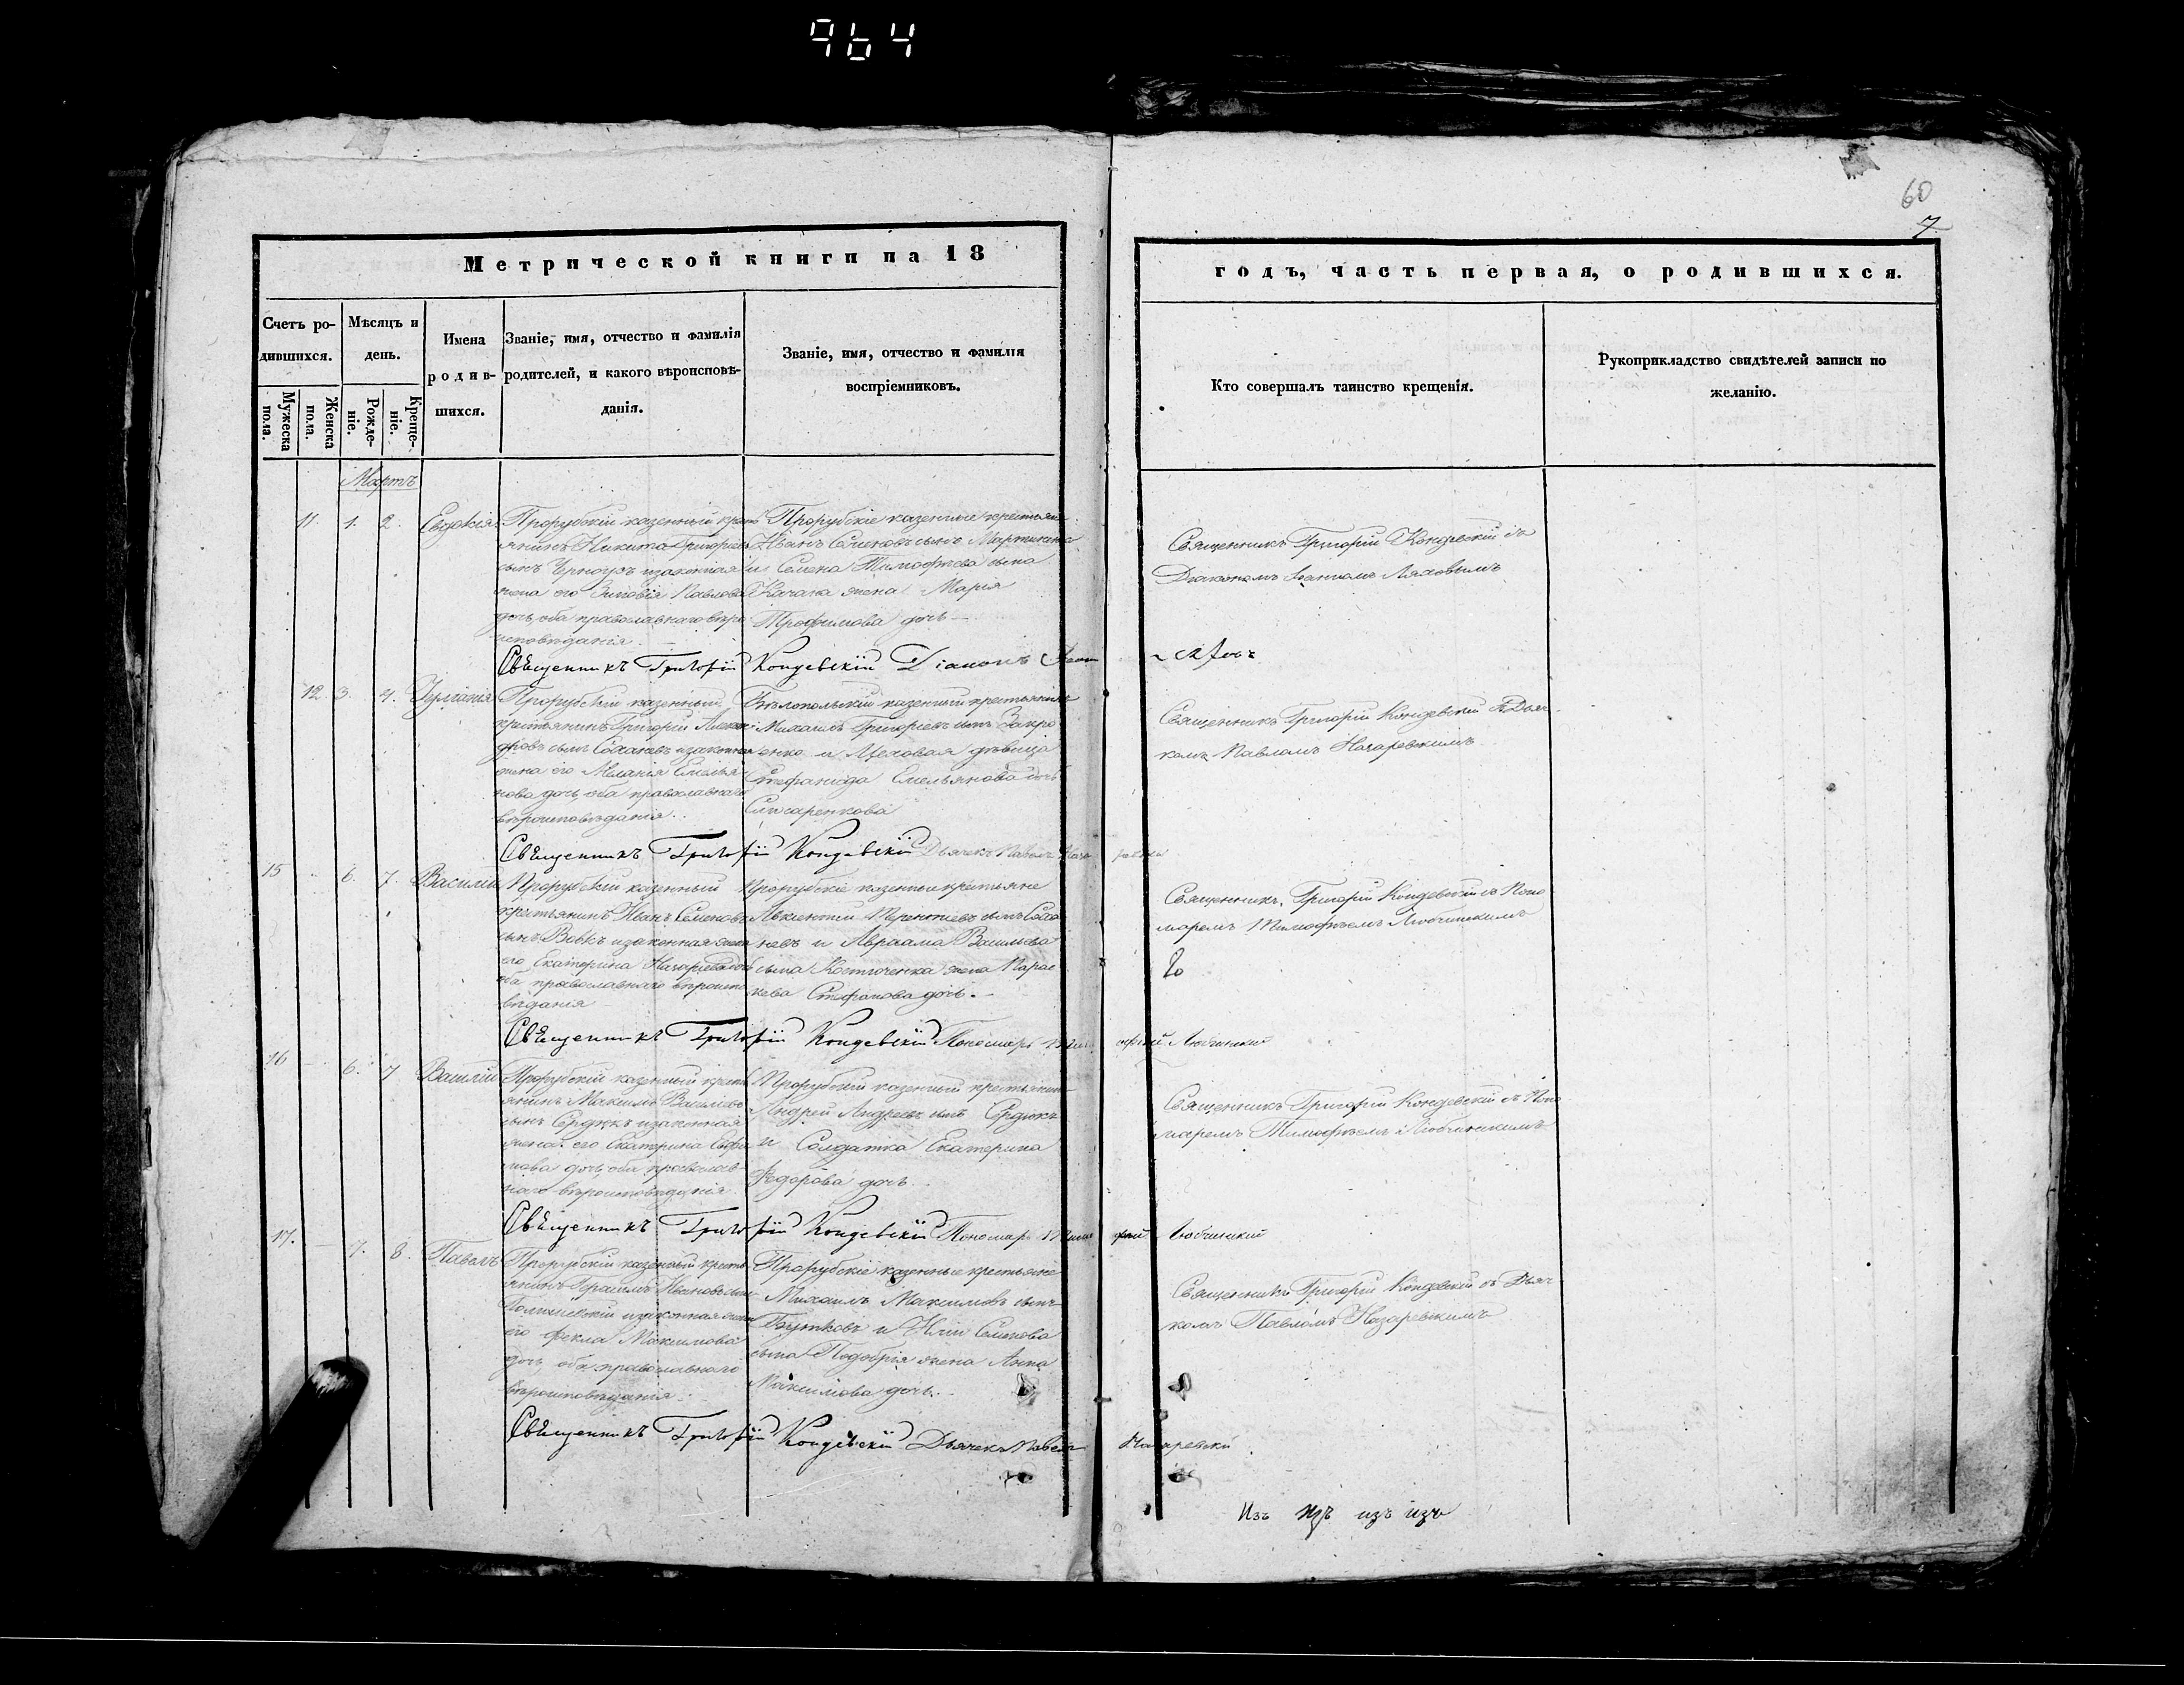 964
60
7
Метрической книги на 18
годъ, часть первая, о родившихся.
Счетъ ро-
дившихся.
Мужеска
пола.
Женска
пола.
Мѣсяцъ и
день.
Рожде-
ніе.
Креще-
ніе.
Имена
родив-
шихся.
Званіе, имя, отчество и фамилія
родителей, и какого вѣроисповѣ-
данія.
Званіе, имя, отчество и фамилія
воспріемниковъ.
Кто совершалъ таинство крещенія.
Рукоприкладство свидѣтелей записи по
желанію.
Мартъ
11. 1. 2. Евдокія
Прорубскій казенный кресть
янинъ Никита Григорьевъ
сынъ изаконная
жена его Зиновія Павлова
дочь, оба православнаго вѣро
исповѣданія.
Прорубскіе казенные крестьяне
Иванъ Семеновъ сынъ
и Семена Тимофѣева сына
жена Марія
Трофимова дочь
Священникъ Григорій Кондевскій съ
Діакономъ
Священникъ Григорій Кондевскій Діаконъ
12. 3. 4. Іуліанія
Прорубскій казенный
крестьянинъ Григорій Алексан
дровъ сынъ Саханевъ изаконная
жена его Меланія Емелья
нова дочь, оба православнаго
вѣроисповѣданія.
Бѣлопольскій казенный крестьянинъ
Михаилъ Григорьевъ сынъ
и Цеховая дѣвица
Стефанида Емельянова дочь
Священникъ Григорій Кондевскій съ Дьяч
комъ Павломъ Назаревскимъ
Священникъ Григорій Кондевскій Дьячекъ Павелъ
15 6. 7. Василій
Прорубскій казенный
крестьянинъ Иванъ Семеновъ
сынъ Вовкъ изаконная жена
его Екатерина Назарьева дочь
оба православнаго вѣроиспо
вѣданія
Прорубскіе казенные крестьяне
Авксентій Терентіевъ сынъ Саха
невъ и Авраама Васильева
сына Костюченка жена Парас
кева Стефанова дочь.
Священникъ Григорій Кондевскій съ Поно
маремъ Тимофѣемъ Любчинскимъ
Священникъ Григорій Кондевскій Пономарь Тимофей Любчинскій
16 6. 7 Василій
Прорубскій казенный кресть
янинъ Максимъ Васильевъ
сынъ Сердюкъ изаконная
жена его Екатерина
дочь, оба православ
наго вѣроисповѣданія
Прорубскій казенный крестьянинъ
Андрей Андреевъ сынъ Сердюкъ
и Солдатка Екатерина
Федорова дочь.
Священникъ Григорій Кондевскій съ Поно
маремъ Тимофѣемъ Любчинскимъ
Священникъ Григорій Кондевскій Пономарь Тимофей Любчинскій
17. 7. 8. Павелъ
Прорубскій казенный кресть
янинъ Герасимъ Ивановъ сынъ
изаконная жена
его Фекла Максимова
дочь, оба православнаго
вѣроисповѣданія.
Прорубскіе казенные крестьяне
Михаилъ Максимовъ сынъ
и Иліи Семенова
сына жена Анна
Максимова дочь.
Священникъ Григорій Кондевскій съ Дьяч
комъ Павломъ Назаревскимъ
Священникъ Григорій Кондевскій Дьячекъ Павелъ Назаревскій
Изъ изъ изъ изъ